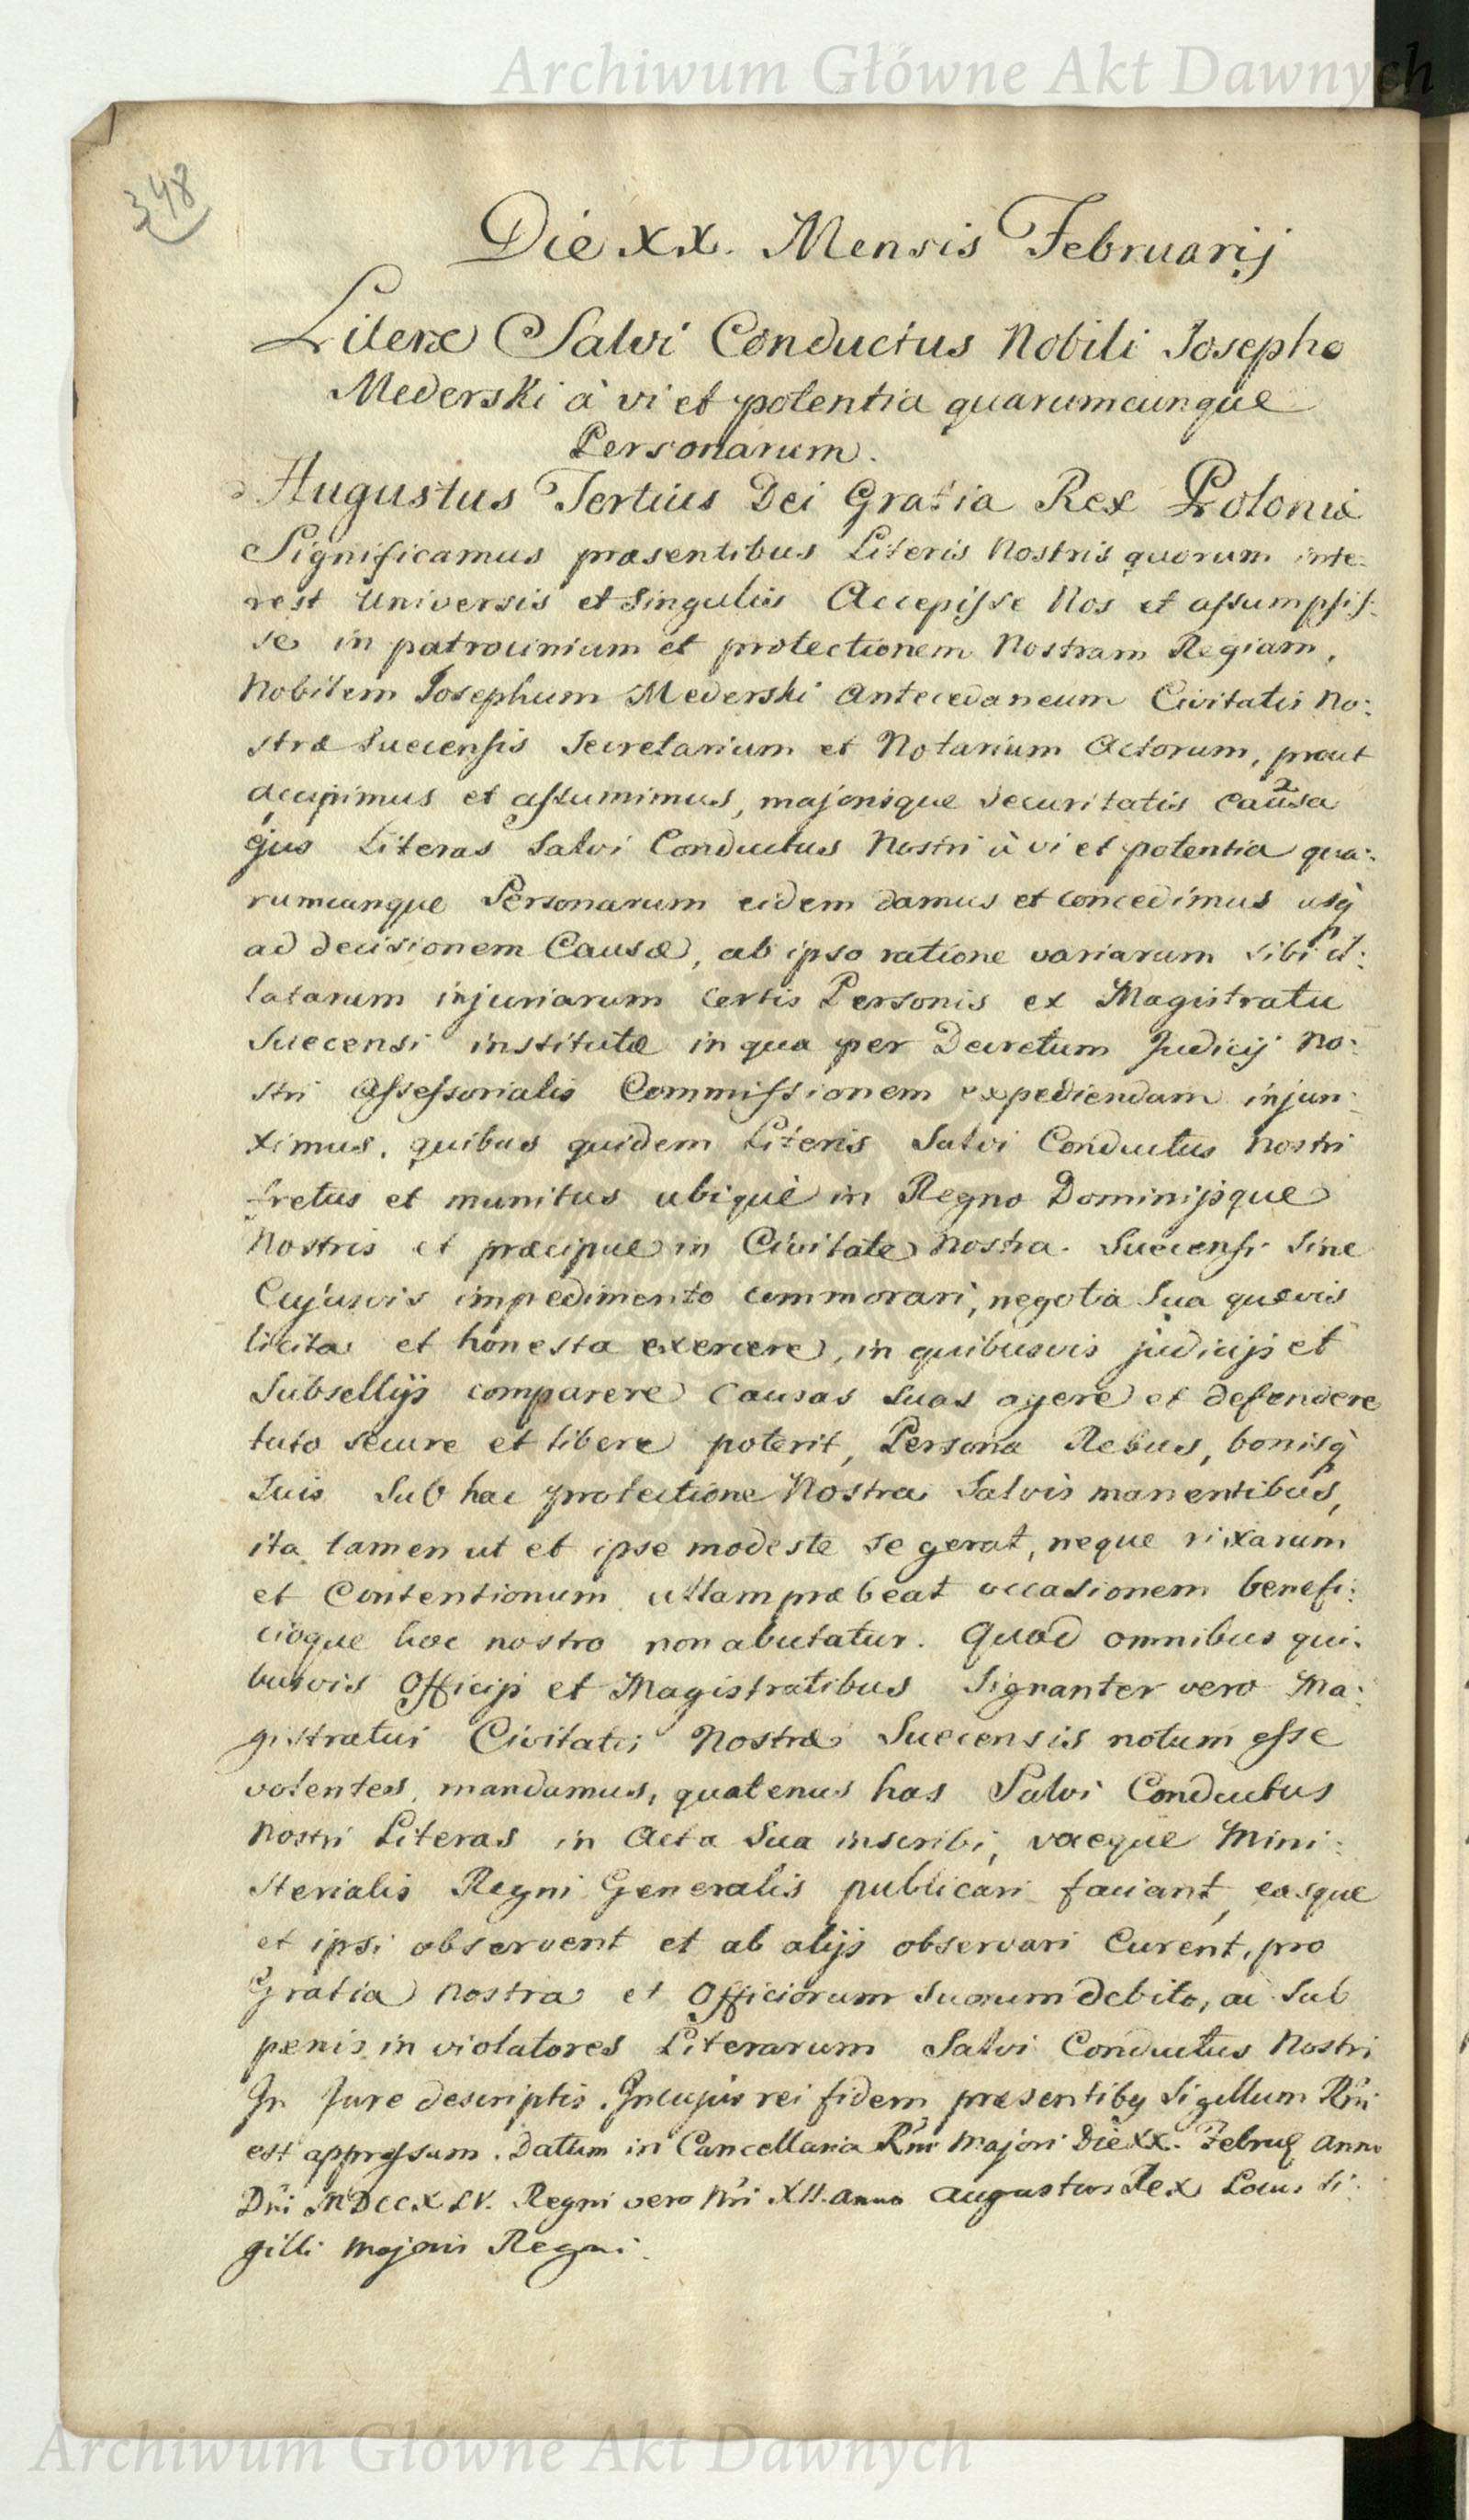 Archiwum Główne Akt Dawnych
348
Die XX. Mensis Februarij
Literæ Salvi Conductus Nobili Josepho
Mederski à vi et potentia quarumcunque
Personarum.
Augustus Tertius Dei Gratia Rex Poloniæ
Significamus præsentibus Literis Nostris quorum inte:
rest Universis et Singulis Accepisse Nos et assumpsis:
se in patrocinium et protectionem Nostram Regiam,
Nobilem Josephum Mederski Antecedaneum Civitatis No:
stræ Suecensis Secretarium et Notarium Actorum, prout
accipimus et assumimus, majorisque Securitatis causa
ejus Literas Salvi Conductus Nostri à vi et potentia qua:
rumcunque Personarum eidem damus et concedimus usq̀
ad decisionem Causæ, ab ipso ratione variarum sibi il:
latarum injuriarum certis Personis ex Magistratu
Suecensi institutæ in qua per Decretum Judicij No:
stri Assessorialis Commissionem expediendam injun:
ximus. quibus quidem Literis Salvi Conductus Nostri
fretus et munitus ubiquè in Regno Dominijsque
Nostris et præcipue in Civitate Nostra Suecensi Sine
Cujusvis impedimento commorari, negotia Sua quævis
licita et honesta exercere, in quibusvis judicijs et
Subsellijs comparere Causas Suas agere et defendere
tuto secure et libere poterit, Persona Rebus, bonisq̀
Suis Sub hac protectione Nostra Salvis manentibus,
ita tamen ut et ipse modeste se gerat, neque rixarum
et Contentionum ullam præbeat occasionem benefi:
cioque hoc nostro non abutatur. Quod omnibus qui:
busvis Officijs et Magistratibus Signanter vero Ma:
gistratui Civitatis Nostræ Suecensis notum esse
volentes, mandamus, quatenus has Salvi Conductus
Nostri Literas in Acta Sua inscribi, voceque Mini:
sterialis Regni Generalis publicari faciant, easque
et ipsi observent et ab alijs observari Curent, pro
Gratia Nostra et Officiorum Suorum debito, ac Sub
pænis in violatores Literarum Salvi Conductus Nostri
In Jure descriptis. In cujus rei fidem præsentibg Sigillum Rni
est appressum. Datum in Cancellaria Rni Majori Die XX. Februarij Anno
Dni MDCCXLV. Regni vero Nri XII. Anno Augustus Rex Locus Si:
gilli Majoris Regni.
Archiwum Główne Akt Dawnych